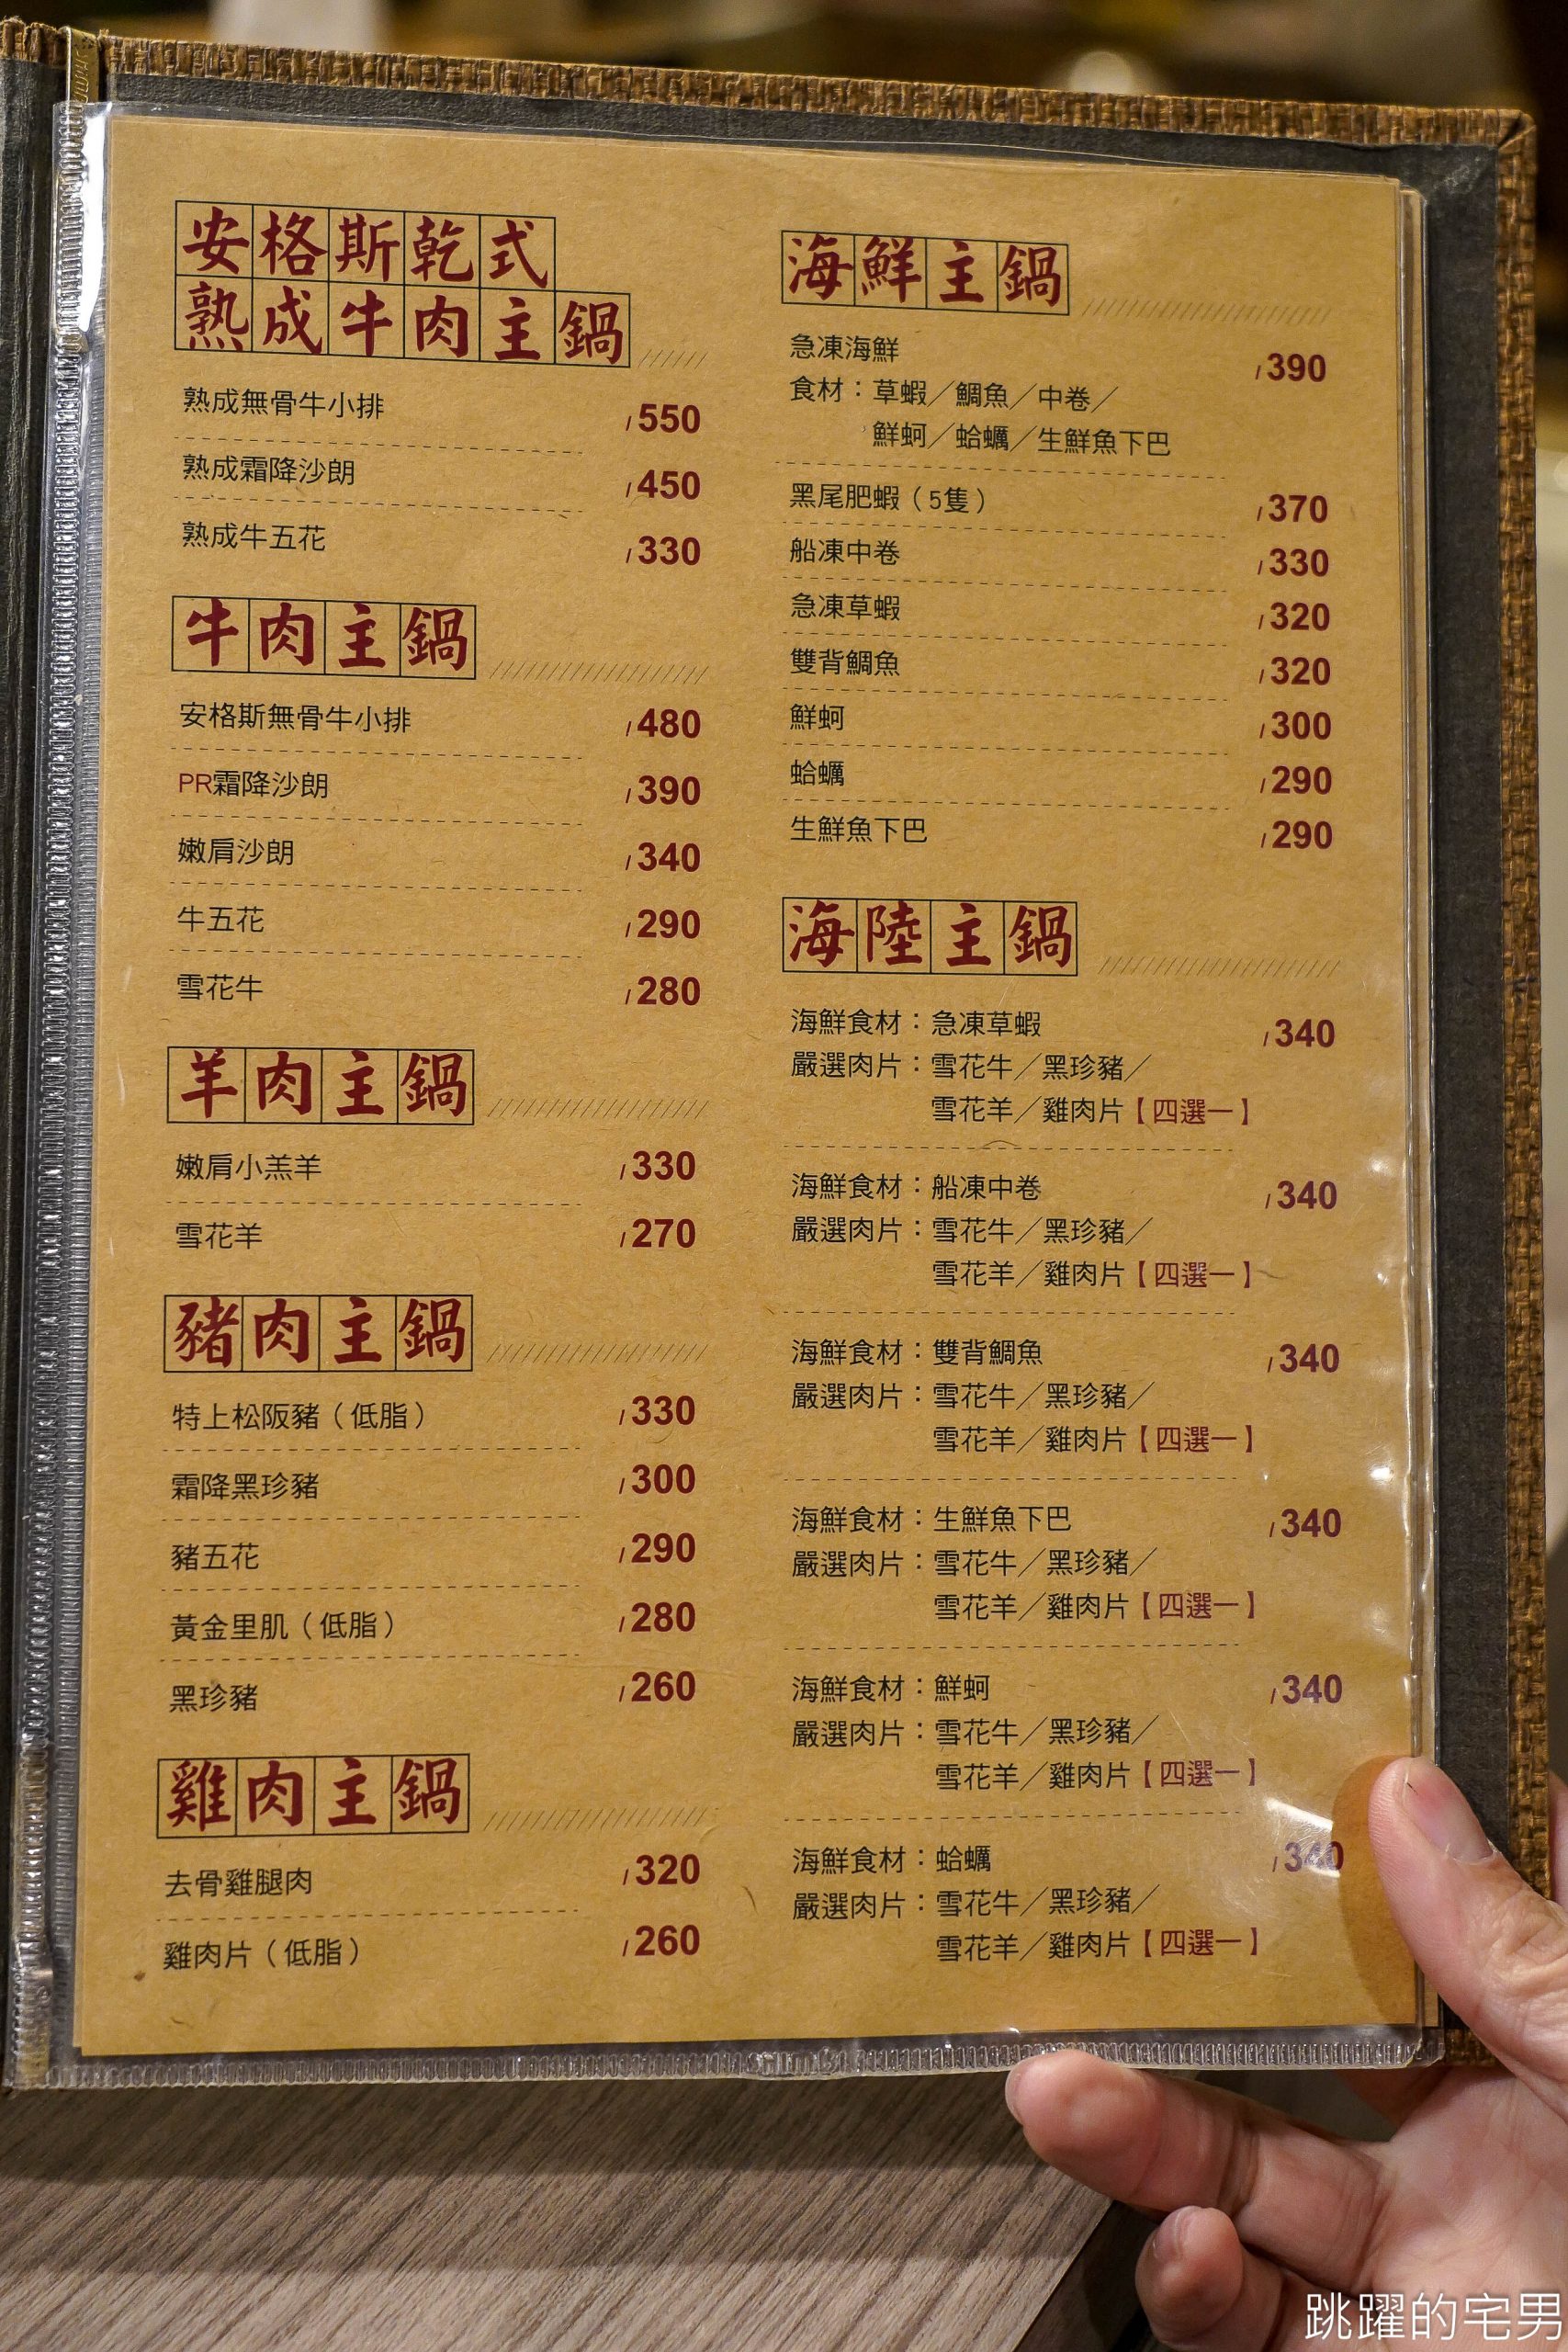 安格斯乾式
熟成牛肉主鍋
熟成無骨牛小排 /550
熟成霜降沙朗 /450
熟成牛五花 /330
牛肉主鍋
安格斯無骨牛小排 /480
PR霜降沙朗 /390
嫩肩沙朗 /340
牛五花 /290
雪花牛 /280
羊肉主鍋
嫩肩小羔羊 /330
雪花羊 /270
豬肉主鍋
特上松阪豬（低脂） /330
霜降黑珍豬 /300
豬五花 /290
黃金里肌（低脂） /280
黑珍豬 /260
雞肉主鍋
去骨雞腿肉 /320
雞肉片（低脂） /260
海鮮主鍋
急凍海鮮 /390
食材：草蝦／鯛魚／中卷／
鮮蚵／蛤蠣／生鮮魚下巴
黑尾肥蝦（5隻） /370
船凍中卷 /330
急凍草蝦 /320
雙背鯛魚 /320
鮮蚵 /300
蛤蠣 /290
生鮮魚下巴 /290
海陸主鍋
海鮮食材：急凍草蝦 /340
嚴選肉片：雪花牛／黑珍豬／
雪花羊／雞肉片【四選一】
海鮮食材：船凍中卷 /340
嚴選肉片：雪花牛／黑珍豬／
雪花羊／雞肉片【四選一】
海鮮食材：雙背鯛魚 /340
嚴選肉片：雪花牛／黑珍豬／
雪花羊／雞肉片【四選一】
海鮮食材：生鮮魚下巴 /340
嚴選肉片：雪花牛／黑珍豬／
雪花羊／雞肉片【四選一】
海鮮食材：鮮蚵 /340
嚴選肉片：雪花牛／黑珍豬／
雪花羊／雞肉片【四選一】
海鮮食材：蛤蠣 /340
嚴選肉片：雪花牛／黑珍豬／
雪花羊／雞肉片【四選一】
跳躍的宅男